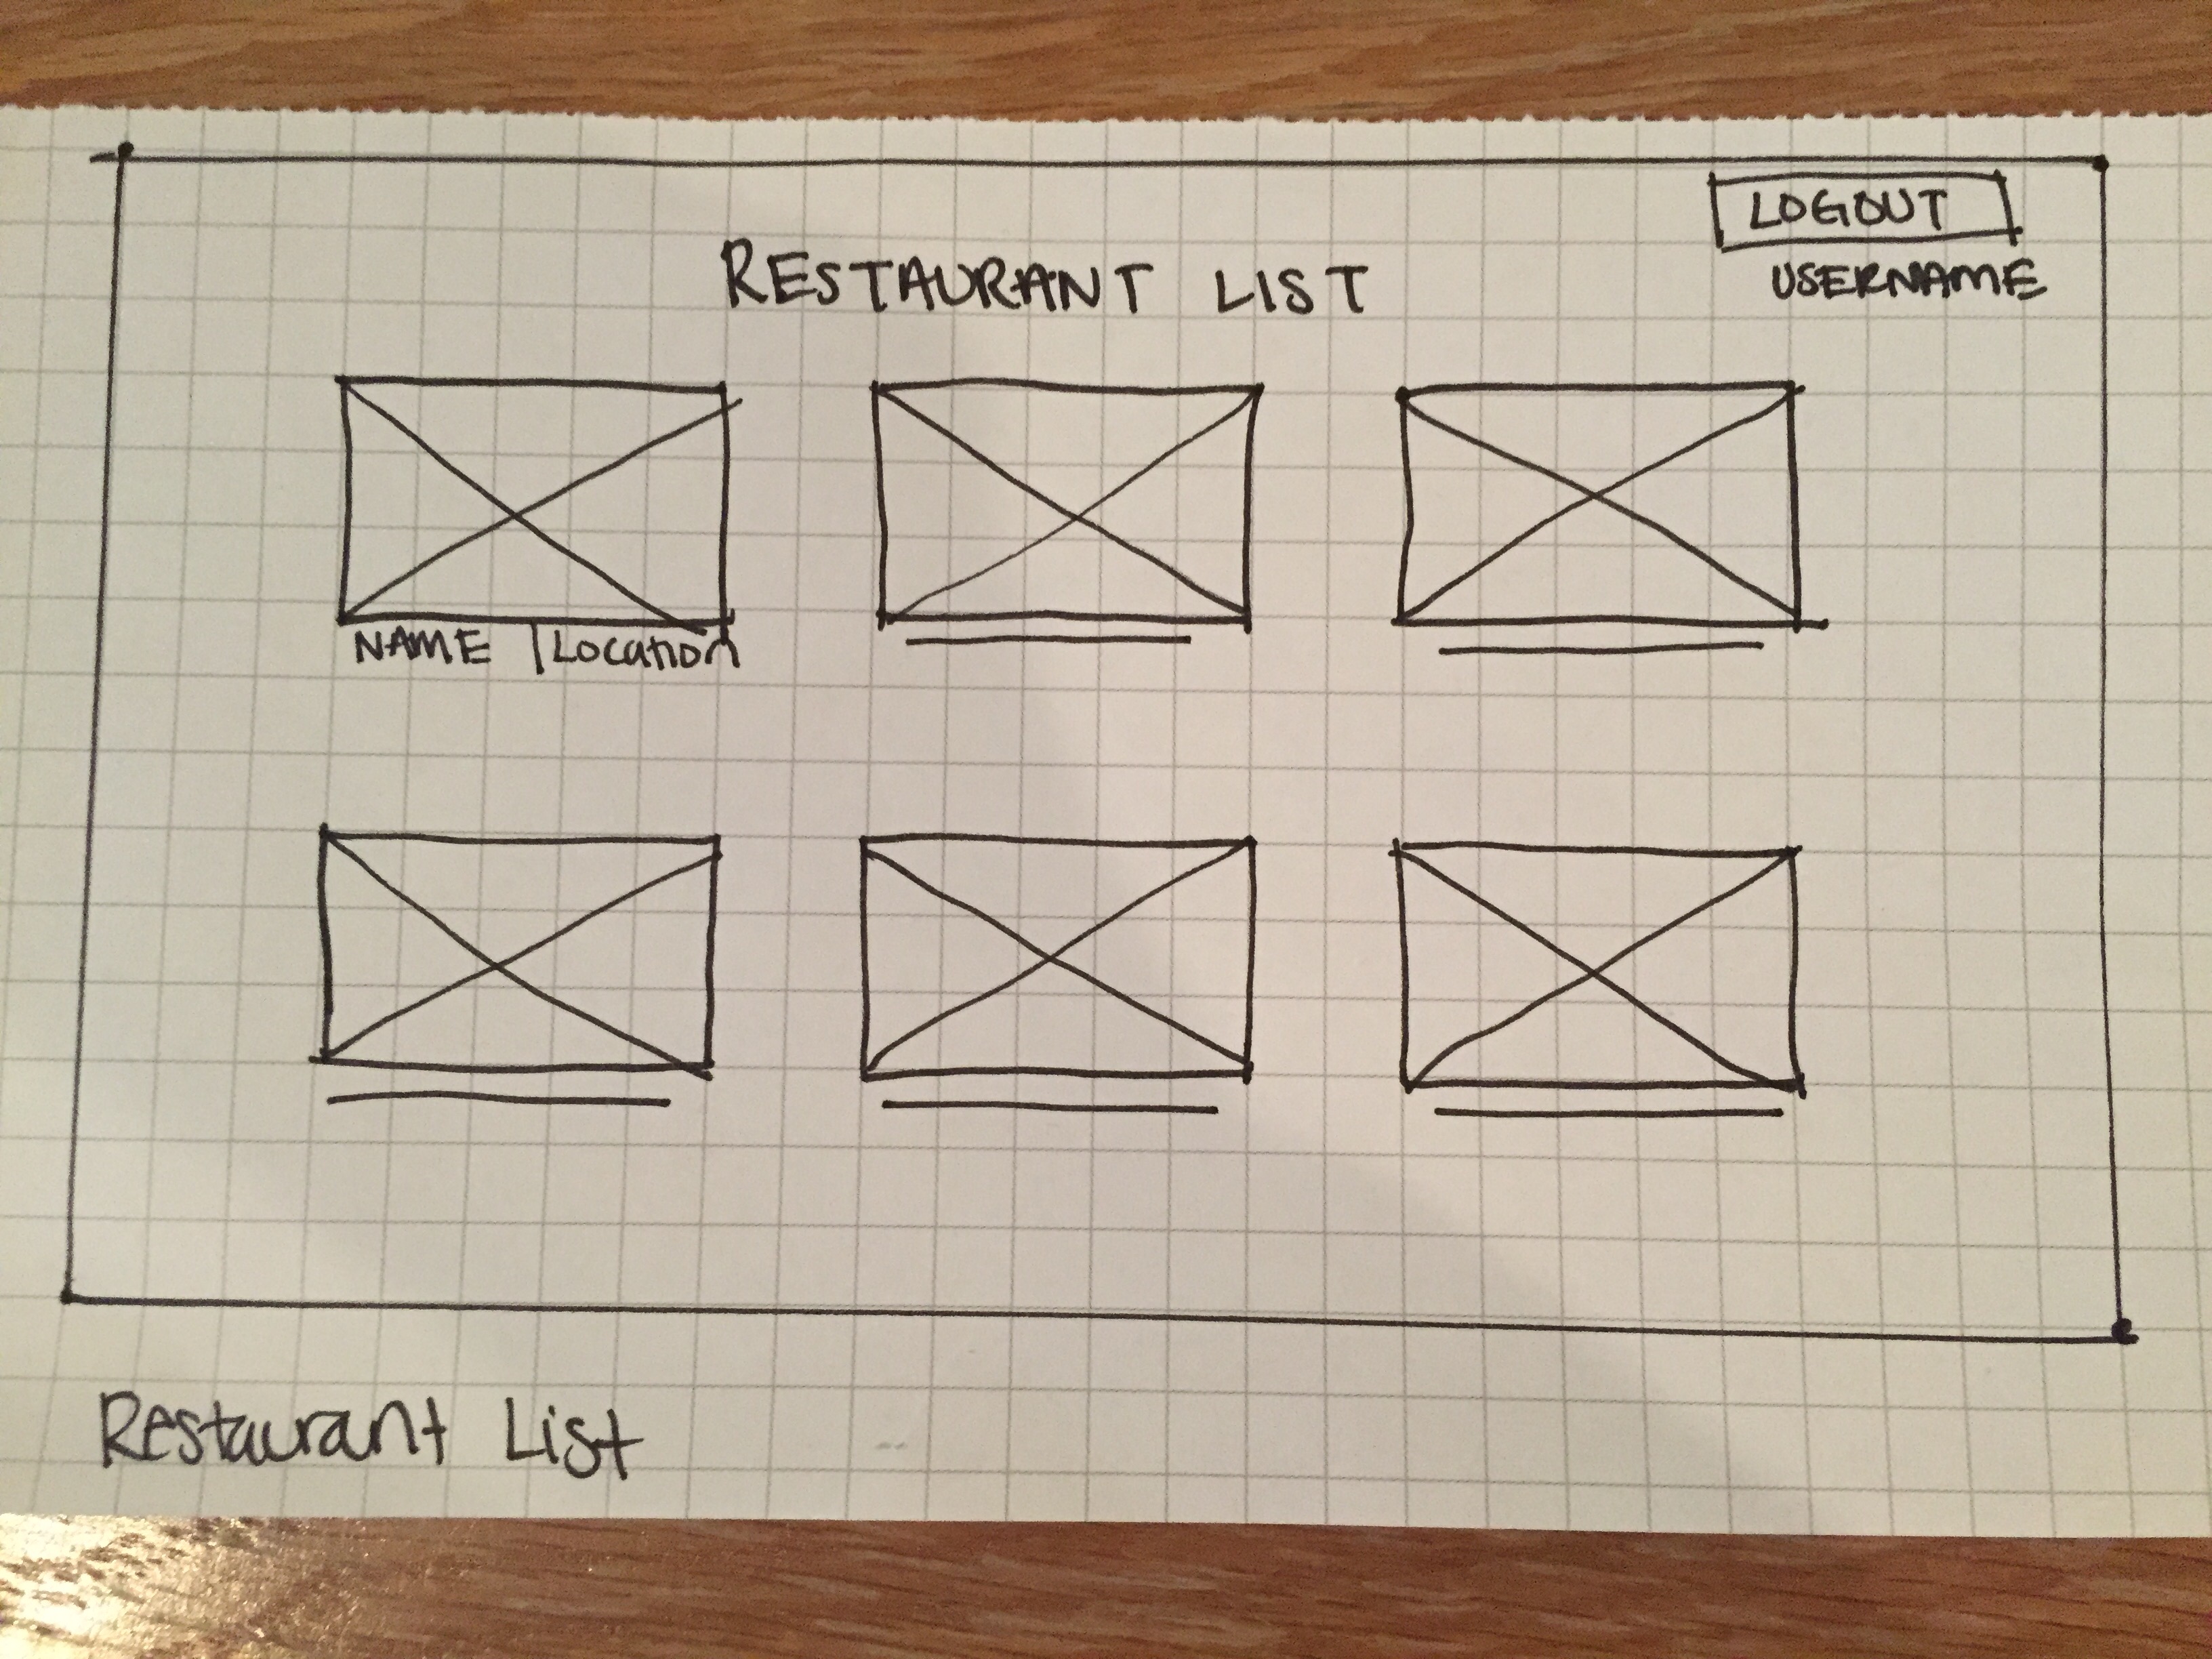 LOGOUT
USERNAME
RESTAURANT LIST
NAME | Location
Restaurant List